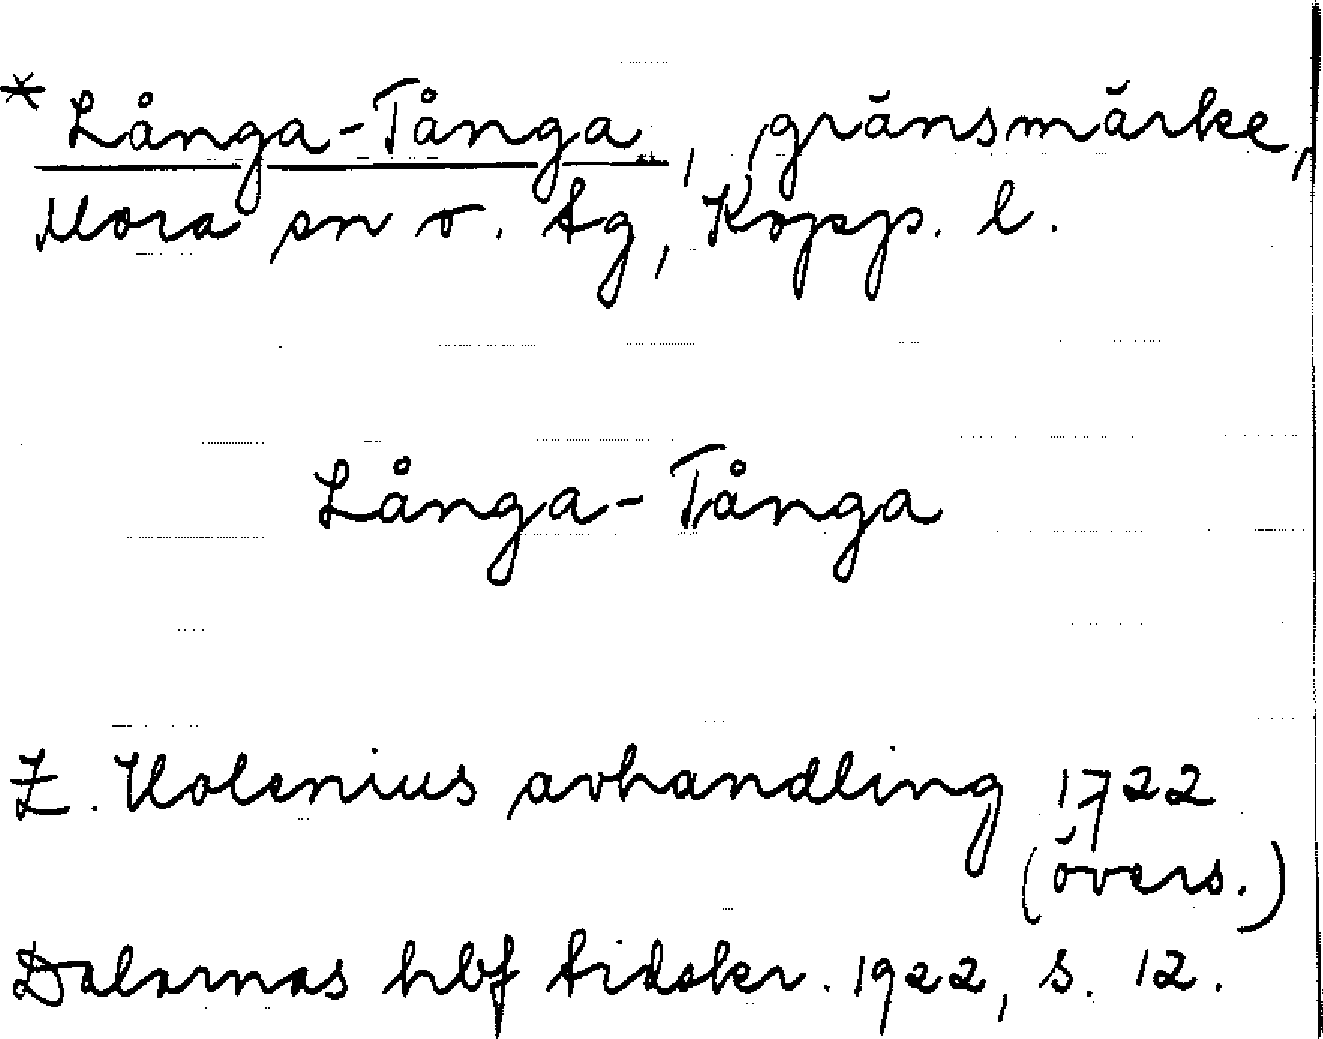 * Långa-Tånga, gränsmärke,
Mora sn o. tg, Kopp. l.
Långa-Tånga
Z. Holenius avhandling 1722
(övers.)
Dalarnas hbf tidskr. 1922, s. 12.